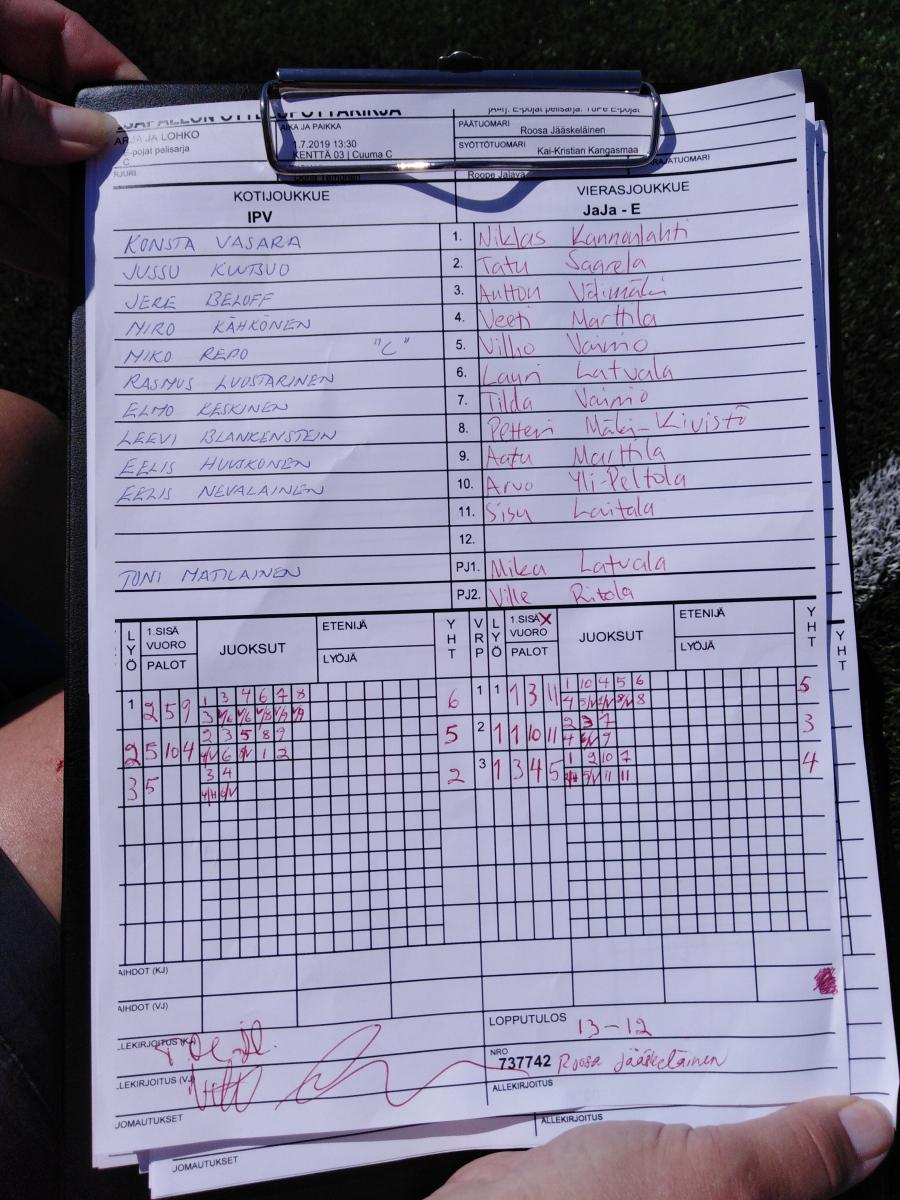 AIKA JA PAIKKA
1.7.2019 13:30
KENTTÄ 03 | Cuuma C
E-pojat pelisarja. TuPe E-pojat
PÄÄTUOMARI
Roosa Jääskeläinen
SYÖTTÖTUOMARI
Kai-Kristian Kangasmaa
RAJATUOMARI
Roope Jalava
ARJA JA LOHKO
E-pojat pelisarja
C
KOTIJOUKKUE
IPV
VIERASJOUKKUE
JaJa - E
KONSTA VASARA 1. Niklas Kannonlahti
JUSSU 2. Tatu
JERE BELOFF 3. Antton Välimäki
MIRO KÄHKÖNEN 4. Veeti Marttila
MIKO REPO "C" 5. Vilho Vainio
RASMUS LUOSTARINEN 6. Lauri Latvala
ELMO KESKINEN 7. Tilda Vainio
LEEVI BLANKENSTEIN 8. Petteri Mäki-Kivistö
EELIS HUVIKONEN 9. Aatu Marttila
EELIS NEVALAINEN 10. Arvo Yli-Peltola
11. Sisu Laitala
12.
TONI MATILAINEN PJ1. Mika Latvala
PJ2. Ville Riitola
LYÖ 1.SISÄ VUORO PALOT JUOKSUT ETENIJÄ LYÖJÄ YHT VRP LYÖ 1.SISÄ X VUORO PALOT JUOKSUT ETENIJÄ LYÖJÄ YHT
YHT
1 2 5 9 1 3 4 6 7 8 6 1 1 1 3 11 1 10 4 5 6 5
2 5 10 4 2 3 5 8 9 5 2 1 1 10 11 2 3 7 3
3 5 3 4 2 3 1 3 4 5 1 9 10 7 4
AIHDOT (KJ)
AIHDOT (VJ)
LOPPUTULOS 13-12
LEKIRJOITUS (KJ)
NRO
737742 Roosa Jääskeläinen
LEKIRJOITUS (VJ)
ALLEKIRJOITUS
JOMAUTUKSET
ALLEKIRJOITUS
JOMAUTUKSET